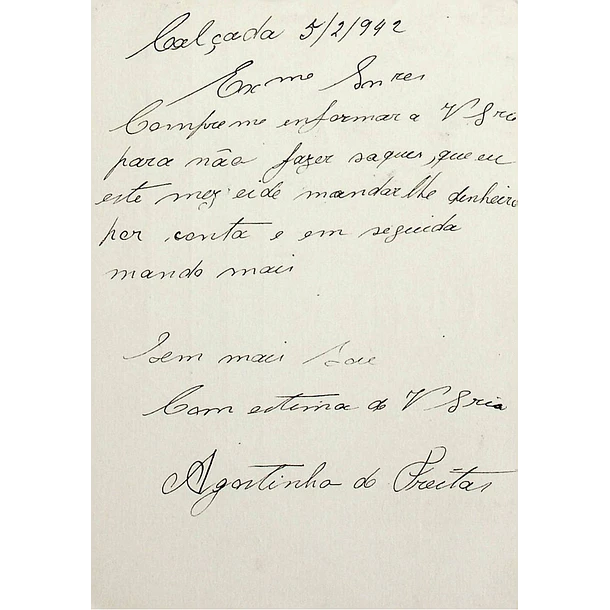 Calçada 5/2/942
Exmo Snres
Compreme enformar a V Sria
para não fazer saques, que eu
este mez eide mandarlhe dinheiro
por conta e em seguida
mando mais
Sem mais Sou
Com estima de V Sria
Agostinho de Freitas